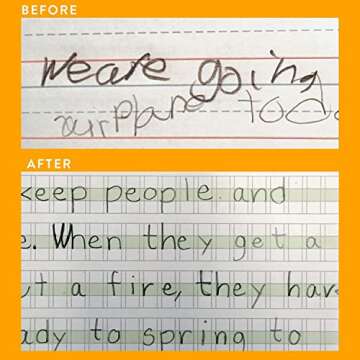 BEFORE
We are going
airplane tod
AFTER
keep people and
e. When they get a
ut a fire, they hav
ady to spring to